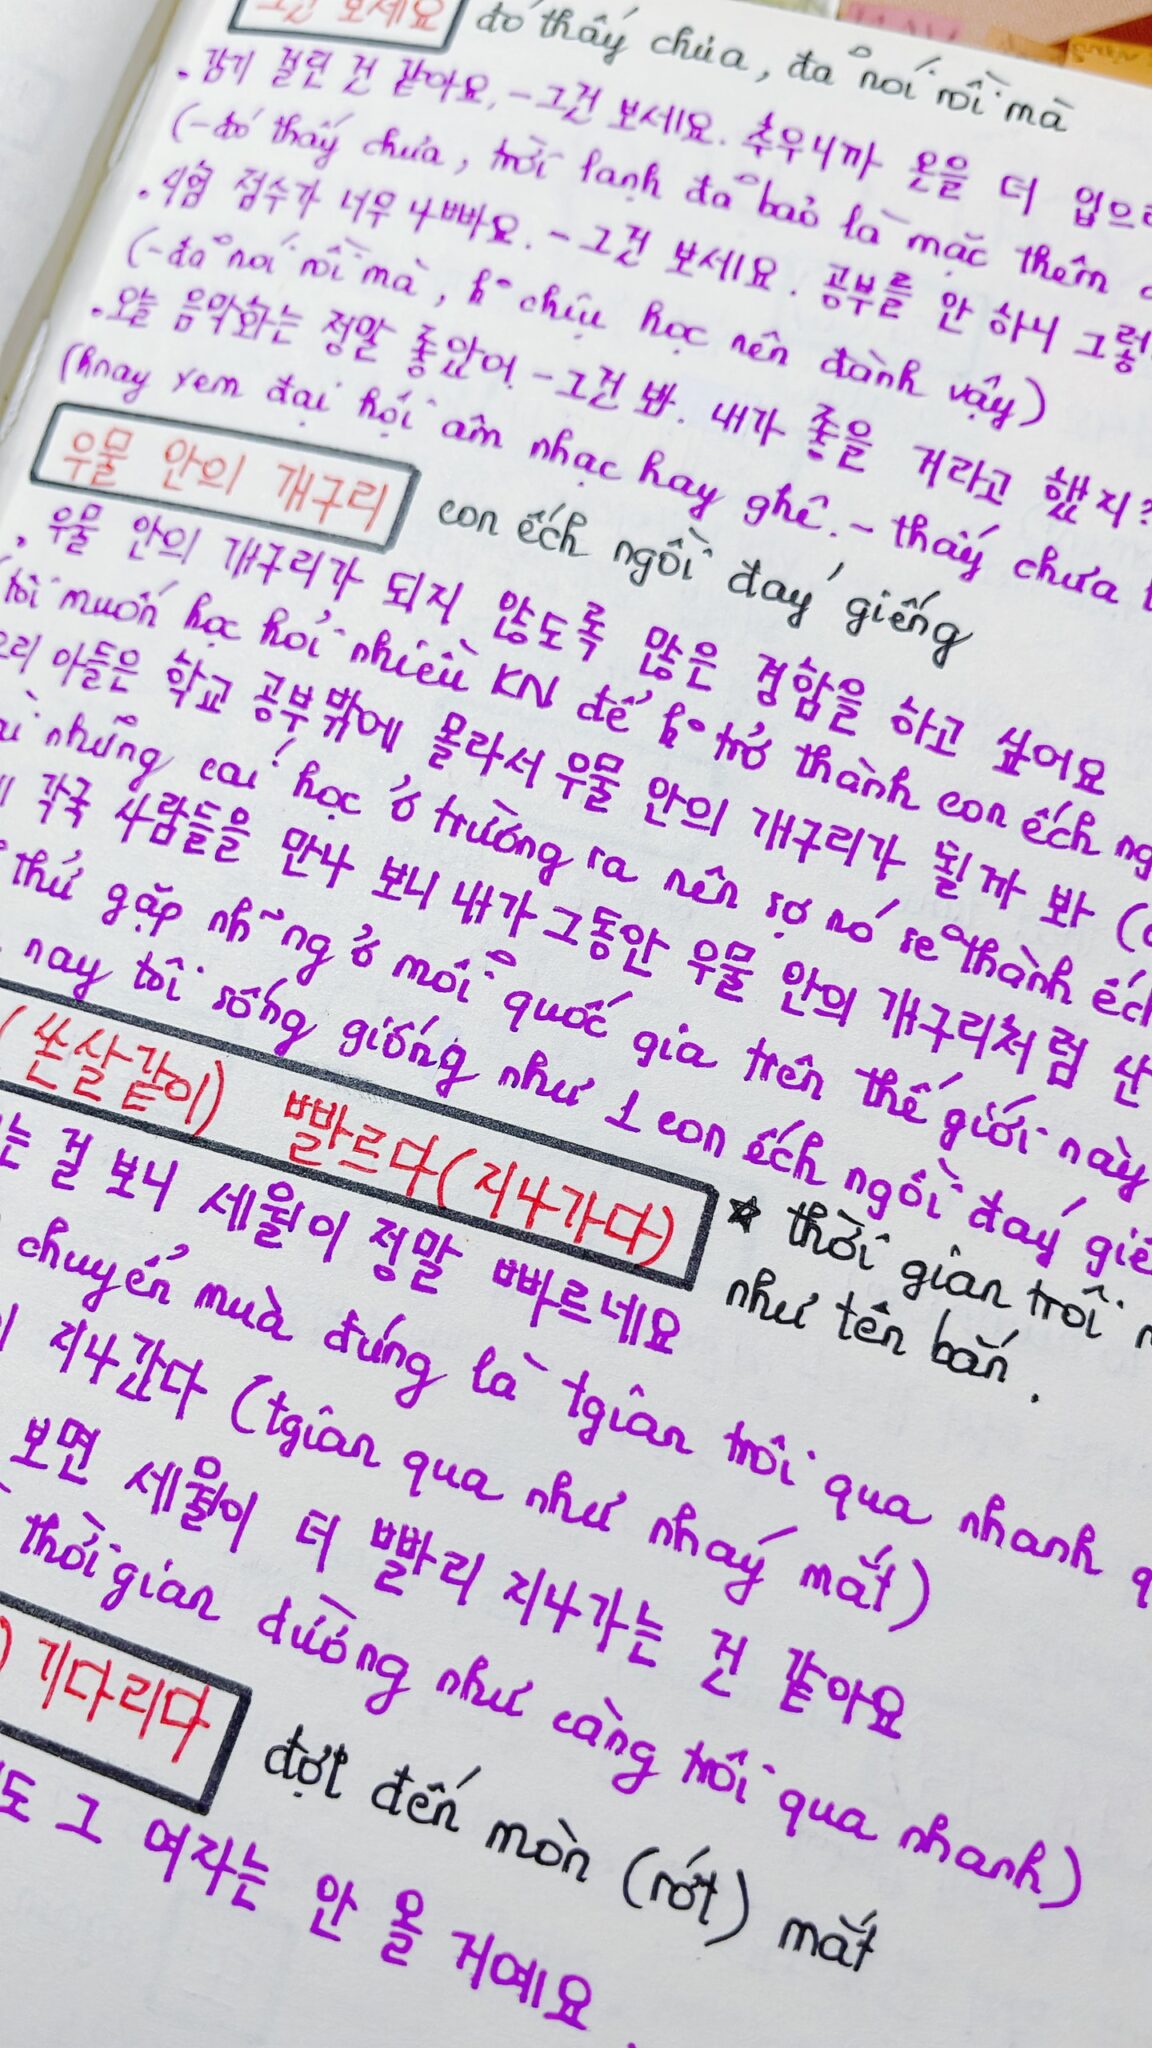 그것 보세요 đó thấy chưa, đã nói rồi mà
. 감기 걸린 것 같아요. - 그것 보세요. 추우니까 옷을 더 입으
(- đó thấy chưa, trời lạnh đã bảo là mặc thêm
. 시험 점수가 너무 나빠요. - 그것 보세요. 공부를 안 하니 그렇
(- đã nói rồi mà, ko chịu học nên đành vậy)
. 오늘 음악회는 정말 좋았어. - 그것 봐. 내가 좋을 거라고 했지?
(hnay xem đại hội âm nhạc hay ghê. - thấy chưa
우물 안의 개구리 con ếch ngồi đáy giếng
. 우물 안의 개구리가 되지 않도록 많은 경험을 하고 싶어요
(tôi muốn học hỏi nhiều KN để ko trở thành con ếch ng
우리 아들은 학교 공부밖에 몰라서 우물 안의 개구리가 될까 봐 (
những cái học ở trường ra nên sợ nó sẽ thành ếch
각국 사람들을 만나 보니 내가 그동안 우물 안의 개구리처럼 산
thứ gặp những ở mỗi quốc gia trên thế giới này
nay tôi sống giống như 1 con ếch ngồi đáy giế
(쏜살같이) 빠르다(지나가다) ★ thời gian trôi
như tên bắn.
는 걸 보니 세월이 정말 빠르네요
chuyển mùa đúng là tgian trôi qua nhanh q
지나간다 (tgian qua như nháy mắt)
보면 세월이 더 빨리 지나가는 것 같아요
thời gian dường như càng trôi qua nhanh)
) 기다리다 đợi đến mòn (rớt) mắt
도 그 여자는 안 올 거예요.